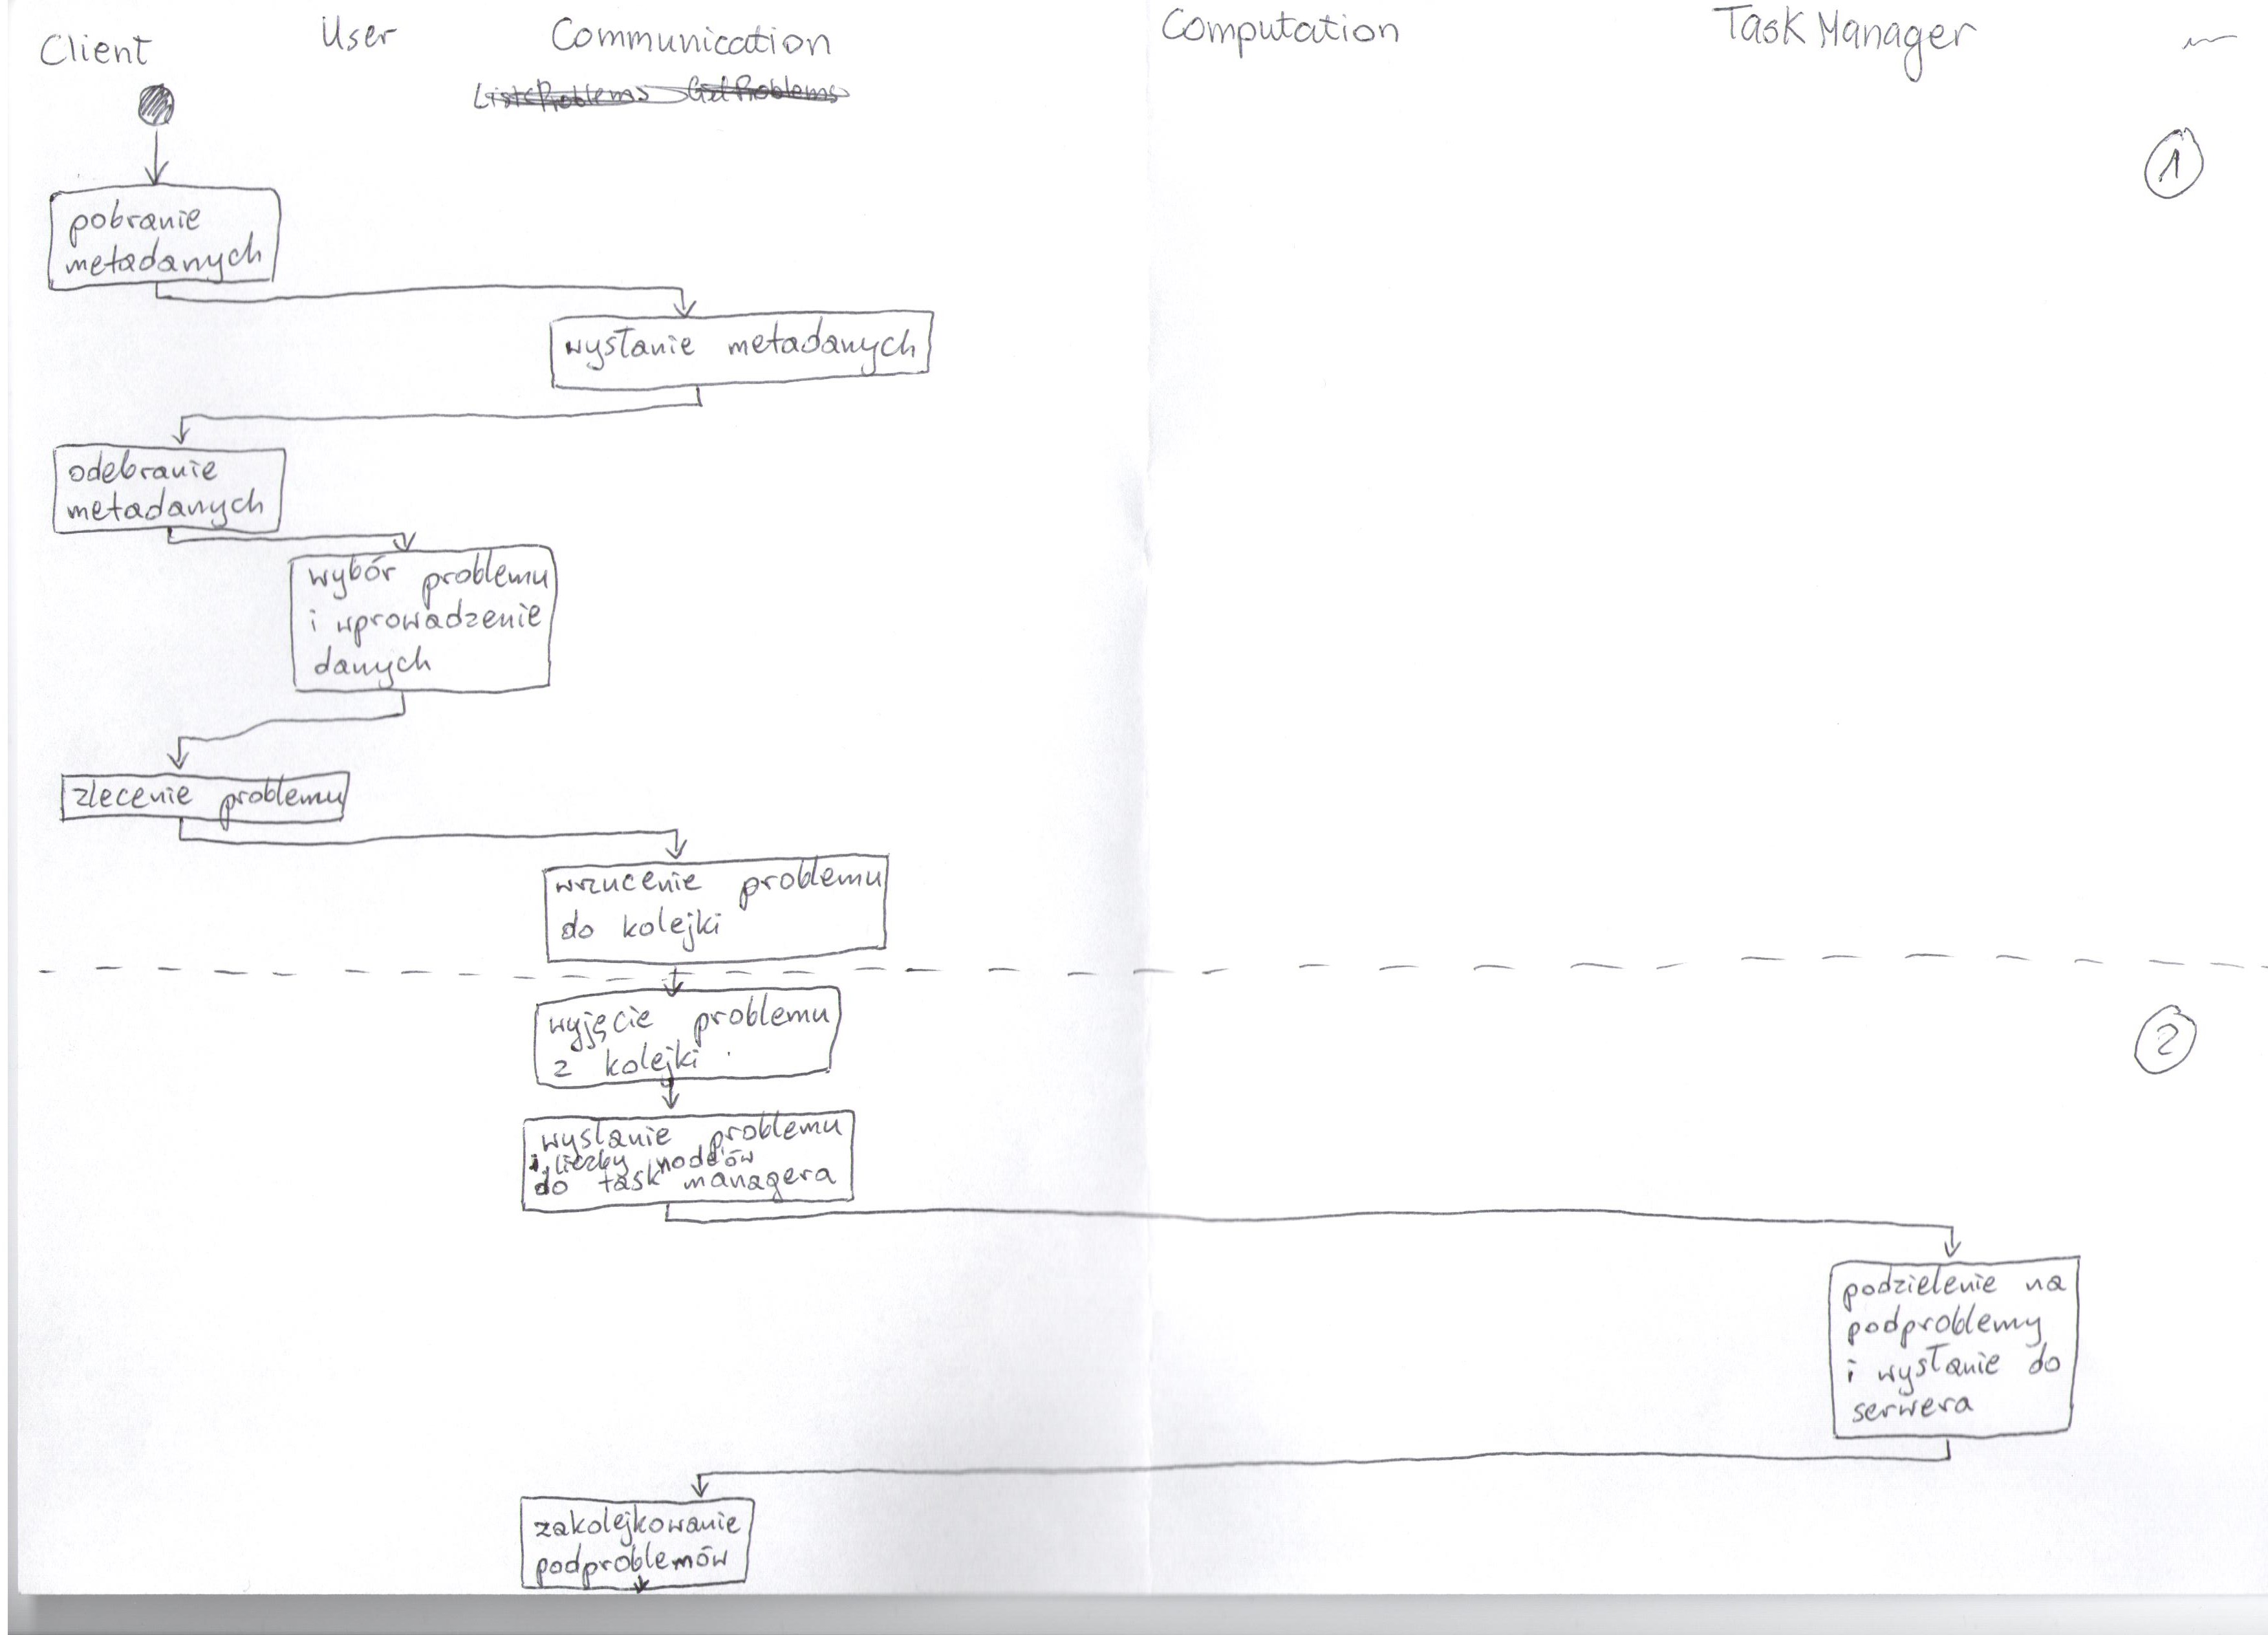 Client
User
Communication
Computation
Task Manager
ListProblems GetProblems
1
pobranie
metadanych
wysłanie metadanych
odebranie
metadanych
wybór problemu
i wprowadzenie
danych
zlecenie problemu
wrzucenie problemu
do kolejki
wyjęcie problemu
z kolejki
2
wysłanie problemu
i liczby nodeów
do task managera
podzielenie na
podproblemy
i wysłanie do
serwera
zakolejkowanie
podproblemów